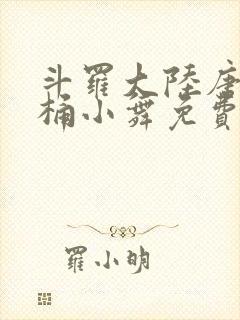 斗羅大陸唐
桶小舞免費
羅小明